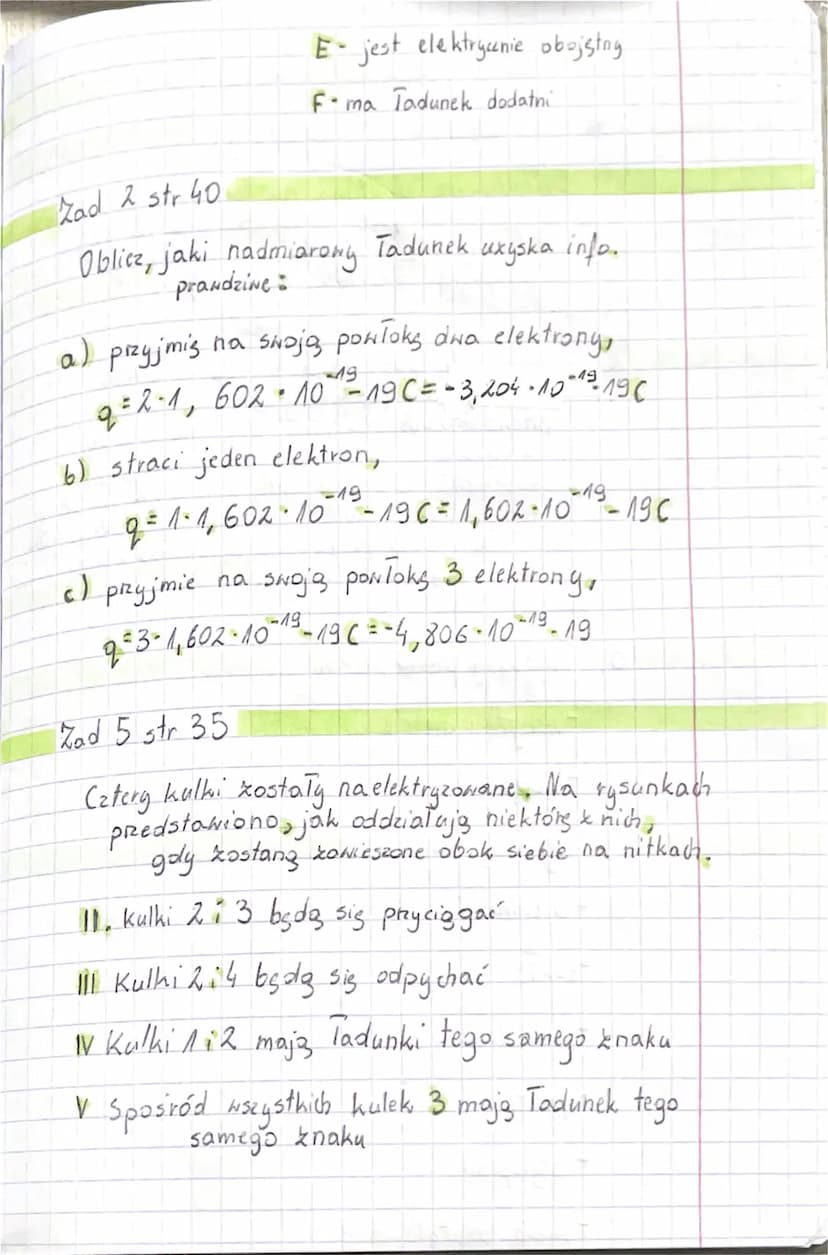 E- jest elektrycznie obojętny
F- ma ładunek dodatni
Zad 2 str 40
Oblicz, jaki nadmiarowy ładunek uzyska info.
prawdziwe:
a) przyjmię na swoją powłokę dwa elektrony,
q=2·1, 602·10⁻¹⁹-19C=-3,204·10⁻¹⁹-19C
b) straci jeden elektron,
q=1·1,602·10⁻¹⁹-19C=1,602·10⁻¹⁹-19C
c) przyjmie na swoją powłokę 3 elektrony,
q=3·1,602·10⁻¹⁹-19C=-4,806·10⁻¹⁹-19
Zad 5 str 35
Cztery kulki zostały naelektryzowane. Na rysunkach
przedstawiono, jak oddziałują niektórę z nich,
gdy zostaną zawieszone obok siebie na nitkach.
II. Kulki 2 i 3 będą się przyciągać
III Kulki 2 i 4 będą się odpychać
IV Kulki 1 i 2 mają ładunki tego samego znaku
V Spośród wszystkich kulek 3 mają ładunek tego
samego znaku